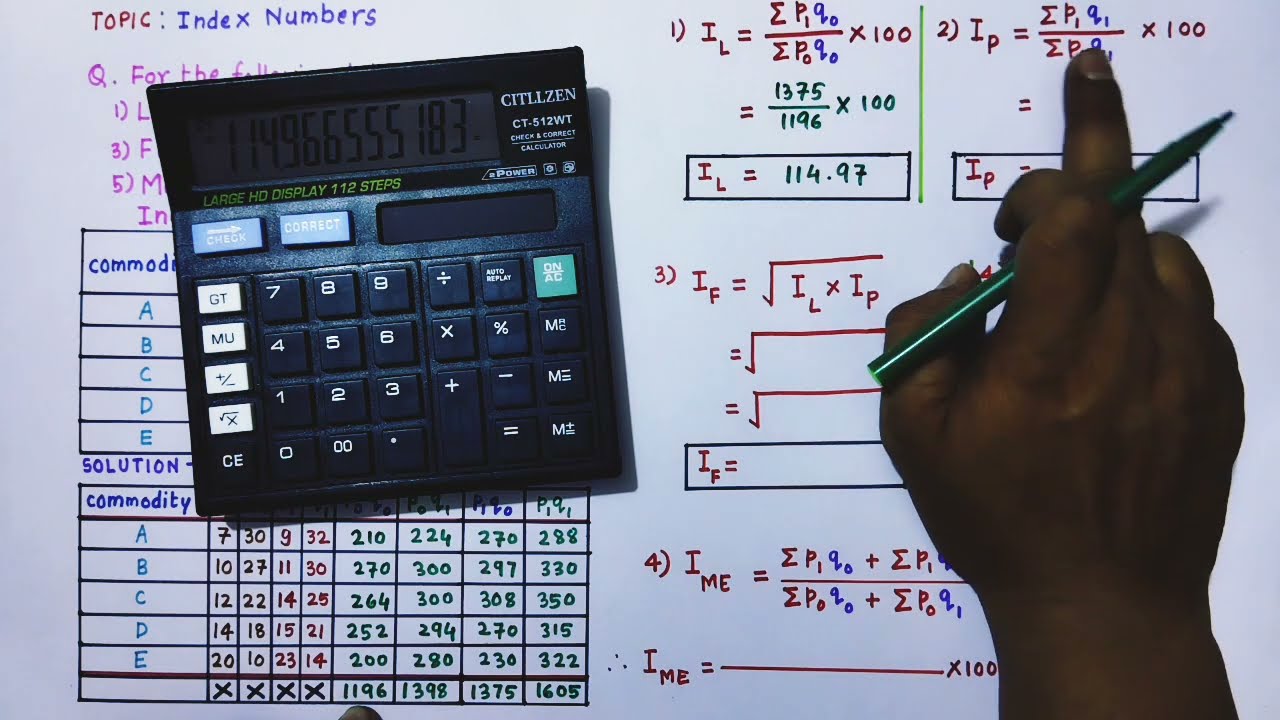 TOPIC: Index Numbers
Q. For the
1) L
3) F
5) M
In
commodi
A
B
C
D
E
SOLUTION -
commodity p₀q₁ p₁q₀ p₁q₁
A 7 30 9 32 210 224 270 288
B 10 27 11 30 270 300 297 330
C 12 22 14 25 264 300 308 350
D 14 18 15 21 252 294 270 315
E 20 10 23 14 200 280 230 322
X X X X 1196 1398 1375 1605
CITLLZEN
CT-512WT
CHECK & CORRECT
CALCULATOR
114.966555183
POWER
LARGE HD DISPLAY 112 STEPS
CHECK CORRECT
GT 7 8 9 ÷ AUTO REPLAY ON/AC
MU 4 5 6 × % MRC
+/− 1 2 3 + − M=
√x 0 00 . = M±
CE
1) I_L = Σp₁q₀ / Σp₀q₀ × 100
= 1375 / 1196 × 100
I_L = 114.97
2) I_P = Σp₁q₁ / Σp₀q₁ × 100
=
I_P =
3) I_F = √(I_L × I_P)
= √
= √
I_F =
4) I_ME = Σp₁q₀ + Σp₁q / Σp₀q₀ + Σp₀q₁
∴ I_ME = ——— ×100